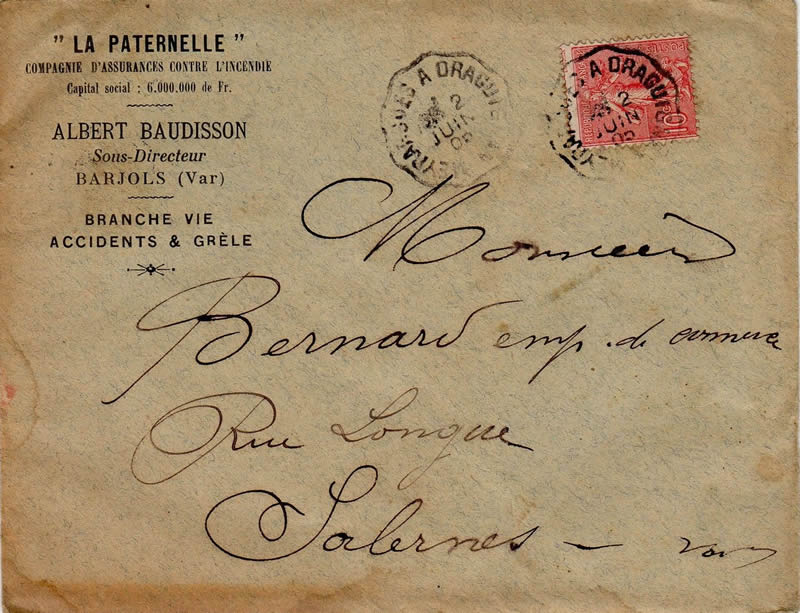 " LA PATERNELLE "
COMPAGNIE D'ASSURANCES CONTRE L'INCENDIE
Capital social : 6.000.000 de Fr.
ALBERT BAUDISSON
Sous-Directeur
BARJOLS (Var)
BRANCHE VIE
ACCIDENTS & GRÈLE
MEYRARGUES A DRAGUIG
2
JUIN
A DRAGUIG
2
JUIN
POSTES
10
Monsieur
Bernard emp. de commerce
Rue Longue
Salernes - Var